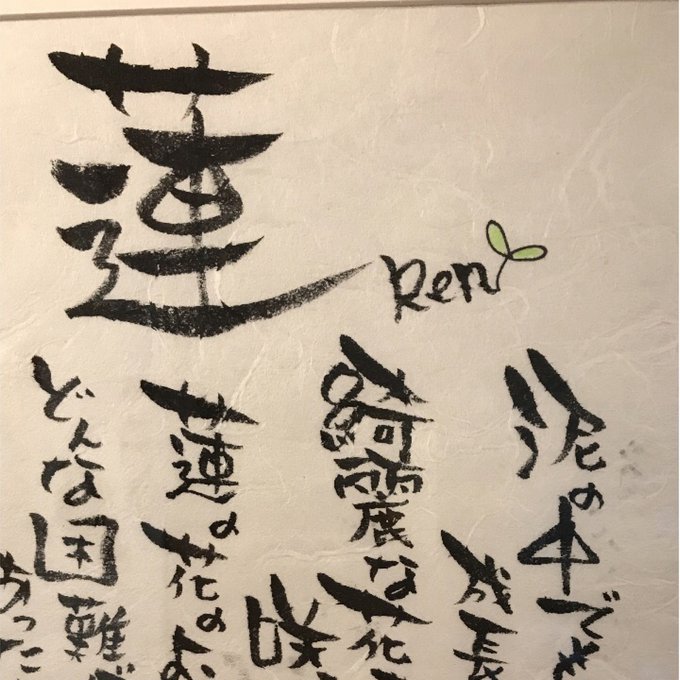 蓮
Ren
泥の中でも
成長
綺麗な花
咲
蓮の花のよ
どんな困難が
あった